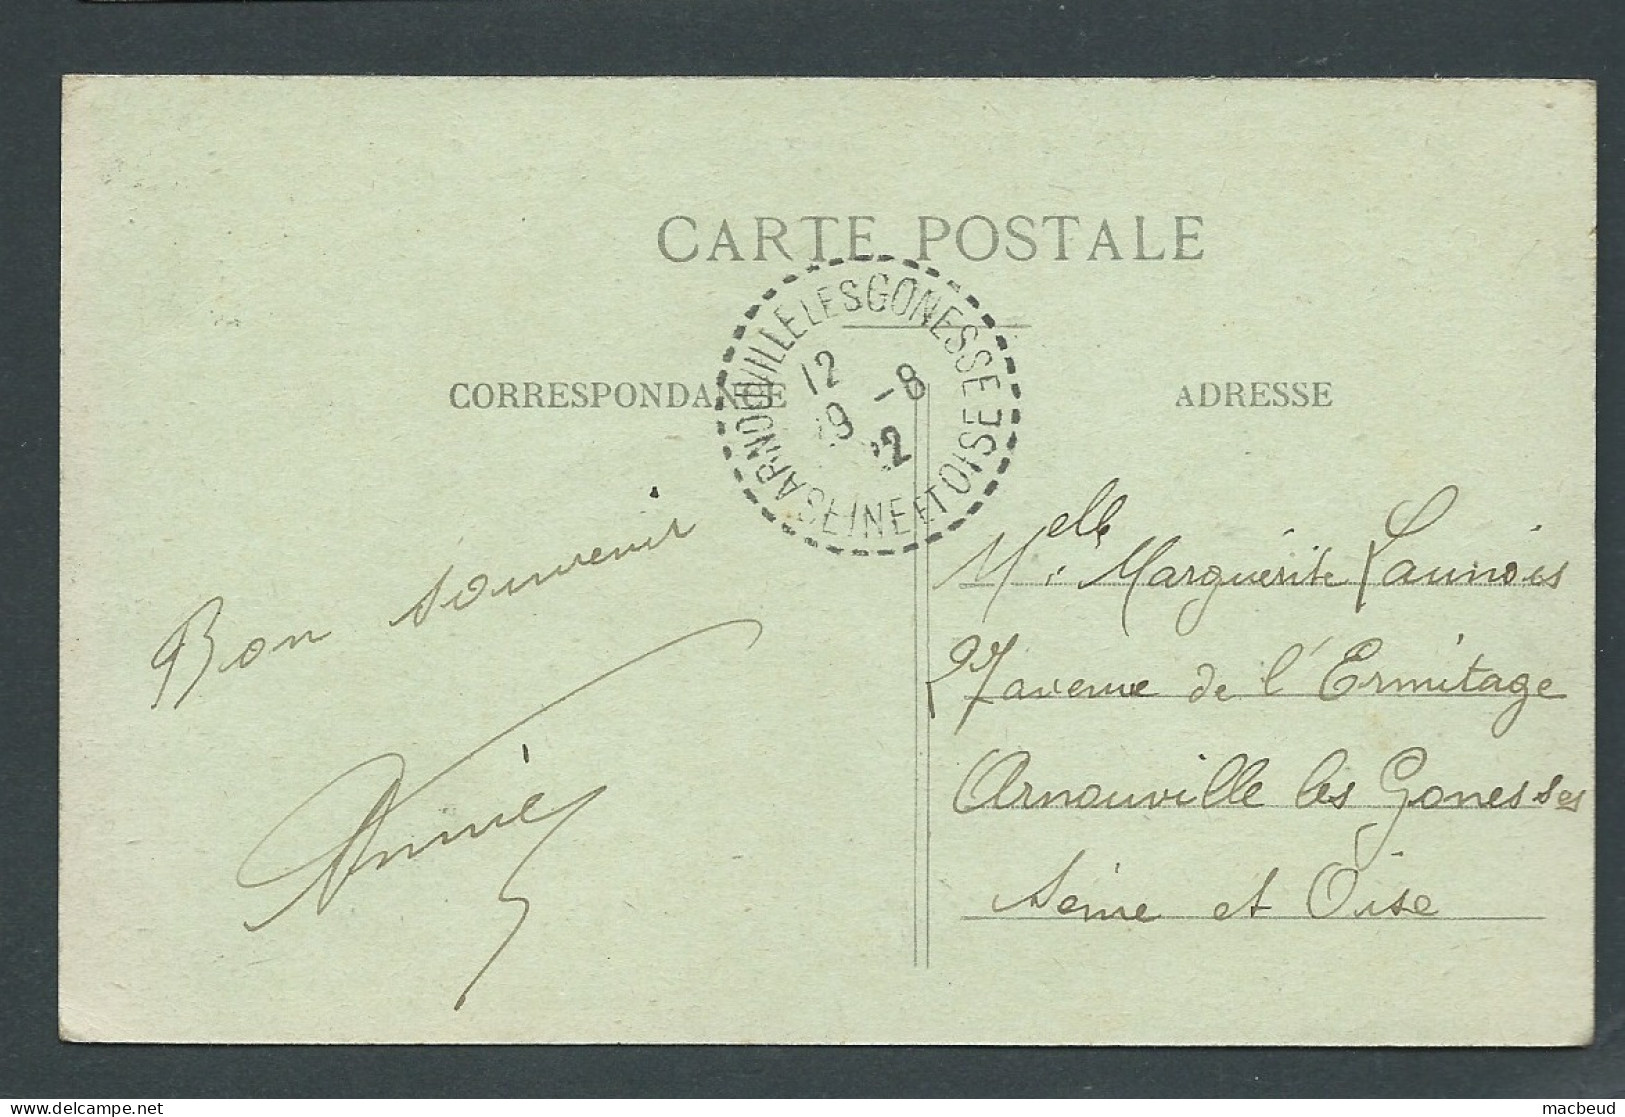 CARTE POSTALE
ARNOUVILLE LES GONESSE
12 -8
19 22
SEINE ET OISE
CORRESPONDANCE
ADRESSE
Bon souvenir
Melle Marguerite Launois
27 avenue de l'Ermitage
Arnouville les Gonesses
Seine et Oise
macbeud